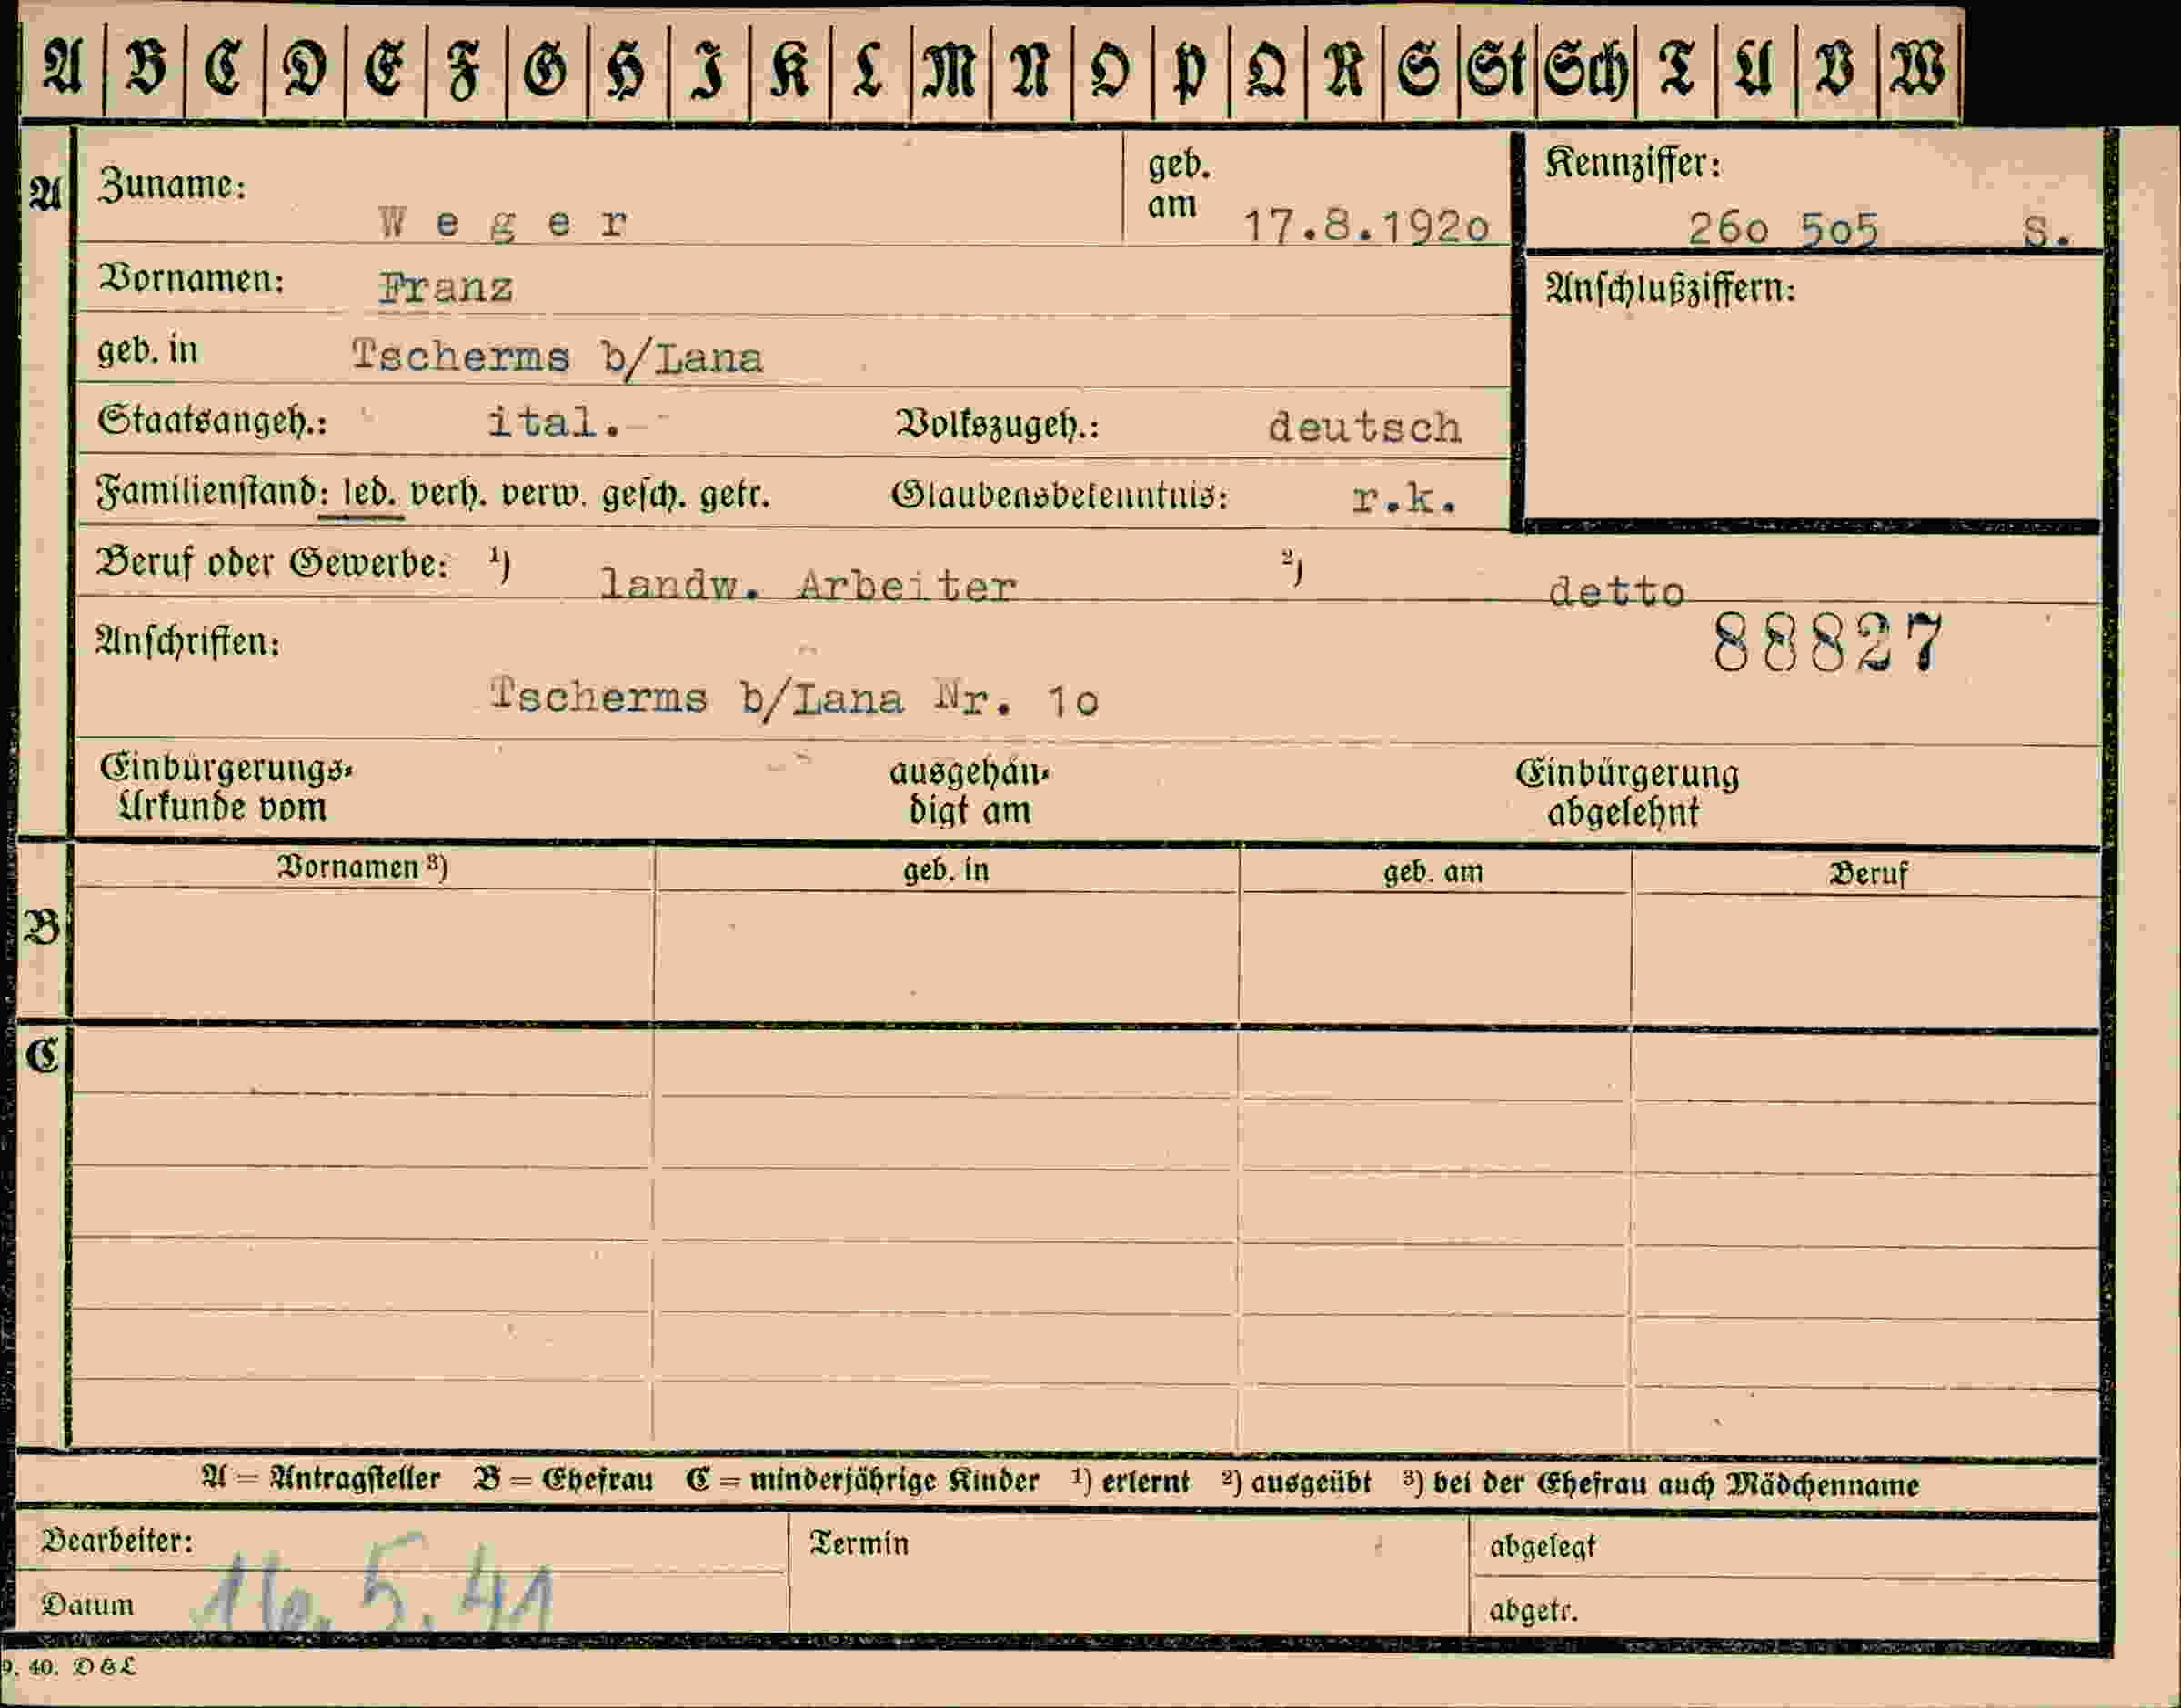 A B C D E F G H I K L M N O P Q R S St Sch T U V W
A
Zuname: Weger
geb. am 17.8.192o
Kennziffer: 26o 5o5 S.
Vornamen: Franz
Anschlußziffern:
geb. in Tscherms b/Lana
Staatsangeh.: ital. Volkszugeh.: deutsch
Familienstand: led. verh. verw. gesch. getr. Glaubensbekenntnis: r.k.
Beruf oder Gewerbe: 1) landw. Arbeiter 2) detto
88827
Anschriften:
Tscherms b/Lana Nr. 1o
Einbürgerungs-Urkunde vom
ausgehändigt am
Einbürgerung abgelehnt
B
Vornamen 3) geb. in geb. am Beruf
C
A = Antragsteller B = Ehefrau C = minderjährige Kinder 1) erlernt 2) ausgeübt 3) bei der Ehefrau auch Mädchenname
Bearbeiter: Termin abgelegt
Datum 16.5.41 abgetr.
9. 40. D & L